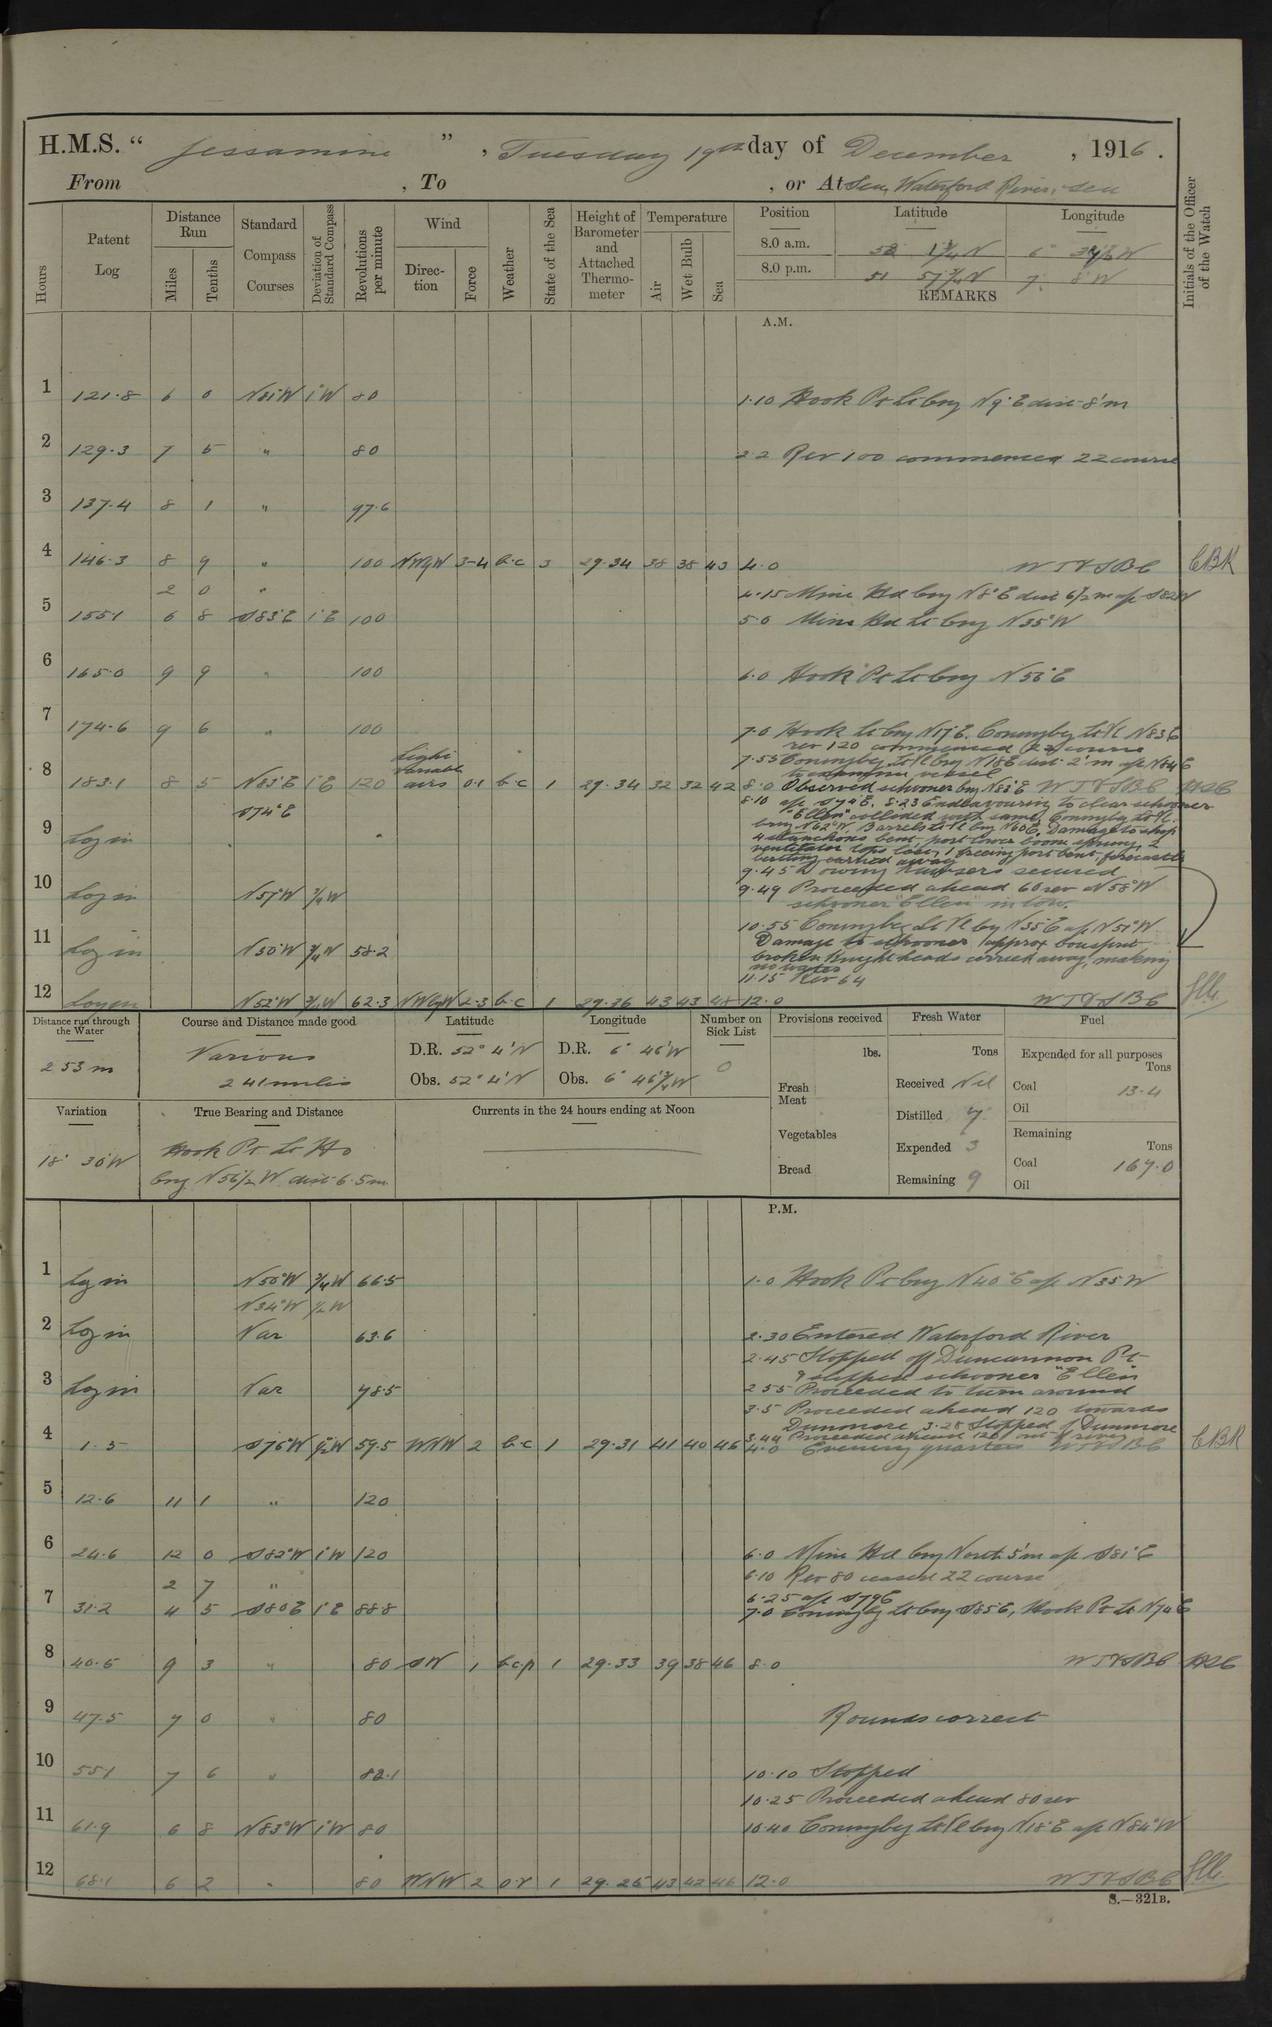 H.M.S. "Jessamine", Tuesday 19th day of December, 1916.
From , To , or At Sea, Waterford River, Sea
Hours
Patent Log
Distance Run
Miles
Tenths
Standard Compass Courses
Deviation of Standard Compass
Revolutions per minute
Wind
Direction
Force
Weather
State of the Sea
Height of Barometer and Attached Thermometer
Temperature
Air
Wet Bulb
Sea
Position
Latitude
Longitude
8.0 a.m. 52 1¾ N 6°
8.0 p.m. 51 57¾ N 7° 8' W
REMARKS
Initials of the Officer of the Watch
A.M.
1 121.8 6 0 N81°W 1°W 80 1.10 Hook Pt Lt brg N9°E dist 8'm
2 129.3 7 5 " 80 2.2 Rev 100 commenced 22 course
3 137.4 8 1 " 97.6
4 146.3 8 9 " 100 NWbyW 3-4 b.c 3 29.34 38 38 43 4.0 WT&SBC CBK
2 0 " 4.15 Mine Hd brg N8°E dist 6½ m a/c S82W
5 155.1 6 8 S83°E 1°E 100 5.0 Mine Hd Lt brg N35°W
6 165.0 9 9 " 100 6.0 Hook Pt Lt brg N56°E
7 174.6 9 6 " 100 7.0 Hook Lt brg N17°E. Coningbeg Lt Vl N83E
rev 120 commenced 22 course
7.55 Coningbeg Lt Vl brg N18E dist 2'm a/c N64E
to examine vessel
8 183.1 8 5 N83°E 1°E 120 Light variable airs 0.1 b.c 1 29.34 32 32 42 8.0 Observed schooner brg N83°E WT&SBC
S74°E 8.10 a/c S74°E. 8.23 Endeavouring to clear schooner
"Ellen" collided with same, Coningbeg Lt Vl.
brg N62°W. Barrels Lt Vl brg N60E. Damage to ship
9 Log in 4 stanchions bent, port lower boom sprung, 2
ventilator tops lost, 1 freeing port bent, forecastle
belting carried away
9.45 Towing hawsers secured
10 Log in N57°W ¾W 9.49 Proceeded ahead 60 rev N58°W
schooner "Ellen" in tow.
10.55 Coningbeg Lt Vl brg N35°E a/c N51°W
11 Log in N50°W ¾W 58.2 Damage to schooner approx bowsprit
broken Knightheads carried away, making
no water
11.15 Rev 64
12 Log in N52°W ¾W 62.3 NWbyW 2-3 b.c 1 29.36 43 43 48 12.0 WT&SBC
Distance run through the Water
253 m
Course and Distance made good
Various
241 miles
Latitude
D.R. 52° 4' N
Obs. 52° 4' N
Longitude
D.R. 6° 46' W
Obs. 6° 46¾' W
Number on Sick List
0
Provisions received
lbs.
Fresh Meat
Vegetables
Bread
Fresh Water
Tons
Received Nil
Distilled 7
Expended 3
Remaining 9
Fuel
Expended for all purposes
Tons
Coal 13.4
Oil
Remaining
Tons
Coal 167.0
Oil
Variation
18° 30'W
True Bearing and Distance
Hook Pt Lt Ho
brg N56½W dist 6.5m
Currents in the 24 hours ending at Noon
P.M.
1 Log in N50°W ¾W 66.5 1.0 Hook Pt brg N40°E a/c N35W
N34°W ½W
2 Log in Var 63.6 2.30 Entered Waterford River
2.45 Stopped off Duncannon Pt
3 Log in Var 78.5 & slipped schooner "Ellen"
2.55 Proceeded to turn around
3.5 Proceeded ahead 120 towards
Dunmore 3.28 Stopped off Dunmore
3.44 Proceeded ahead 120 out of river
4 1.5 S76°W ½W 59.5 WNW 2 b.c 1 29.31 41 40 46 4.0 Evening quarters WT&SBC CBK
5 12.6 11 1 " 120
6 24.6 12 0 S82°W 1°W 120 6.0 Mine Hd brg North 5'm a/c S81°E
2 7 " 6.10 Rev 80 ceased 22 course
6.25 a/c S79E
7 31.2 4 5 S80E 1°E 88.8 7.0 Coningbeg Lt brg S85E, Hook Pt Lt N74E
8 40.5 9 3 " 80 SW 1 b.c.p 1 29.33 39 38 46 8.0 WT&SBC
9 47.5 7 0 " 80 Rounds correct
10 55.1 7 6 " 82.1 10.10 Stopped
10.25 Proceeded ahead 80 rev
11 61.9 6 8 N83°W 1°W 80 10.40 Coningbeg Lt Vl brg N18°E a/c N84°W
12 68.1 6 2 " 80 WNW 2 o.r 1 29.25 43 42 46 12.0 WT&SBC
S.—321B.